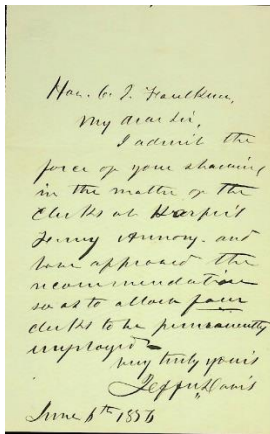 Hon. C. J. Faulkner,
My dear Sir,
I admit the
force of your showing
in the matter of the
Clerks at Harper's
Ferry Armory. and
have approved the
recommendation
so as to allow four
clerks to be permanently
employed
very truly yours
Jeffn Davis
June 6th 1856